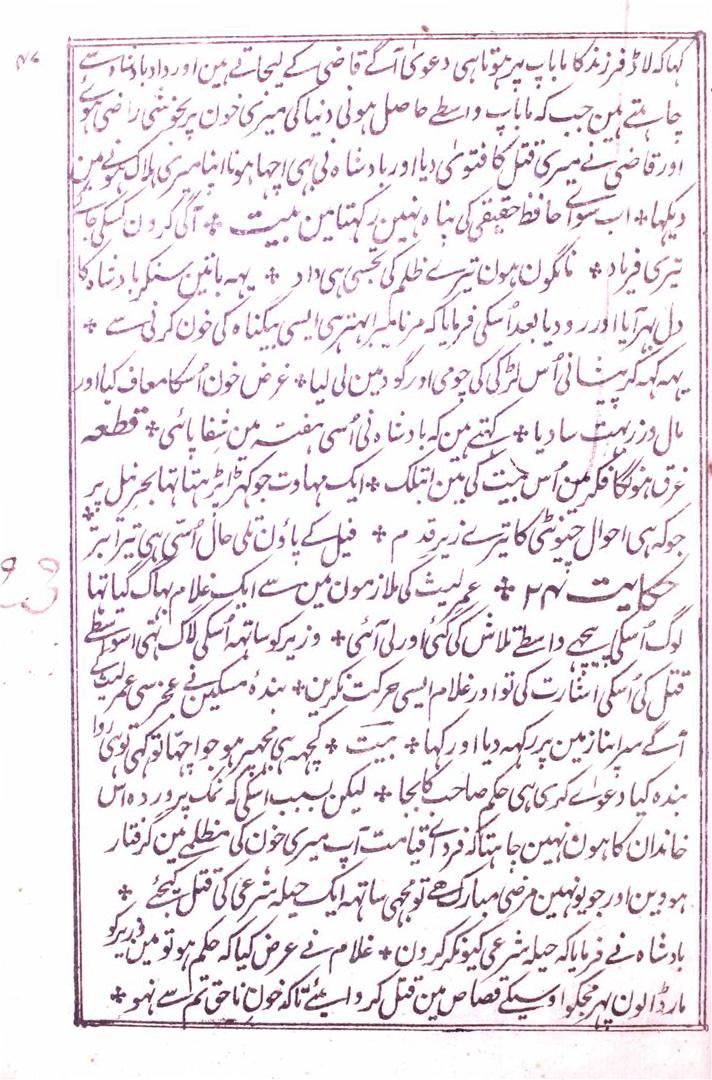 ۴۷
کہا کہ لاڈ فرزند کا ماباپ پر ہوتا ہی دعویٰ آگے قاضی کے لیجاتے ہین اور داد بادشاہ سے
چاہتے ہین جب کہ ماباپ واسطے حاصل ہونی دنیا کی میری خون پر بخوشی راضی ہوئے
اور قاضی نے میری قتل کا فتویٰ دیا اور بادشاہ نی بھی اچھا ہونا اپنا میری ہلاک ہونے مین
دیکھا * اب سوائے حافظ حقیقی کی پناہ نہین رکھتا مین بیت * آگی کرون کسکی جاکے
تیری فریاد * مانگون ہون تیرے ظلم کی تجسی ہی داد * یہہ باتین سنکر بادشاہ کا
دل بہر آیا اور رو دیا بعد اُسکی فرمایا کہ مرنا میرا بہتر ہی ایسی بیگناہ کی خون کرنی سے *
یہہ کہہ کر پیشانی اُس لڑکی کی چومی اور گود مین لی لیا * غرض خون اُسکا معاف کیا اور
مال و زر بہت سا دیا * کہتے ہین کہ بادشاہ نی اُسی ہفتہ مین شفا پائی * قطعہ
غرق ہونگا فکر مین اُس بیت کی مین ابتلک * ایک مہاوت جو کہڑا پڑہتا تہا بحر نیل پر
جو کہ ہی احوال چیونٹی کا تیرے زیر قدم * فیل کے پاؤن تلی حال اُسی ہی تیرا بتر *
حکایت ۲۴ * عمر لیث کی ملازمون مین سے ایک غلام بہاگ گیا تہا
لوگ اُسکی پیچہے واسطے تلاش کی گئی اور لی آئی * وزیر کو ساتہہ اُسکی لاگ تہی اسواسطے
قتل کی اُسکی اشارت کی تو اور غلام ایسی حرکت نکرین * بندہ مسکین نے عجز سی عمر لیث کے
آگے سر اپنا زمین پر رکہہ دیا اور کہا * بیت * کچہہ ہی مجہپر ہو جو اچہا تو کہی تو ہی روا
بندہ کیا دعوے کری ہی حکم صاحب کا بجا * لیکن بسبب اسکی کہ نمک پروردہ اس
خاندان کا ہون نہین چاہتا کہ فردائے قیامت آپ میری خون کی مظلمے مین گرفتار
ہووین اور جو یونہین مرضی مبارک ہے تو مجہی ساتہہ ایک حیلہ شرعی کی قتل کیجئے *
بادشاہ نے فرمایا کہ حیلہ شرعی کیونکر کرون * غلام نے عرض کیا کہ حکم ہو تو مین وزیر کو
مار ڈالون پہر مجکو اوسیکے قصاص مین قتل کروایئے تاکہ خون ناحق تم سے نہو *